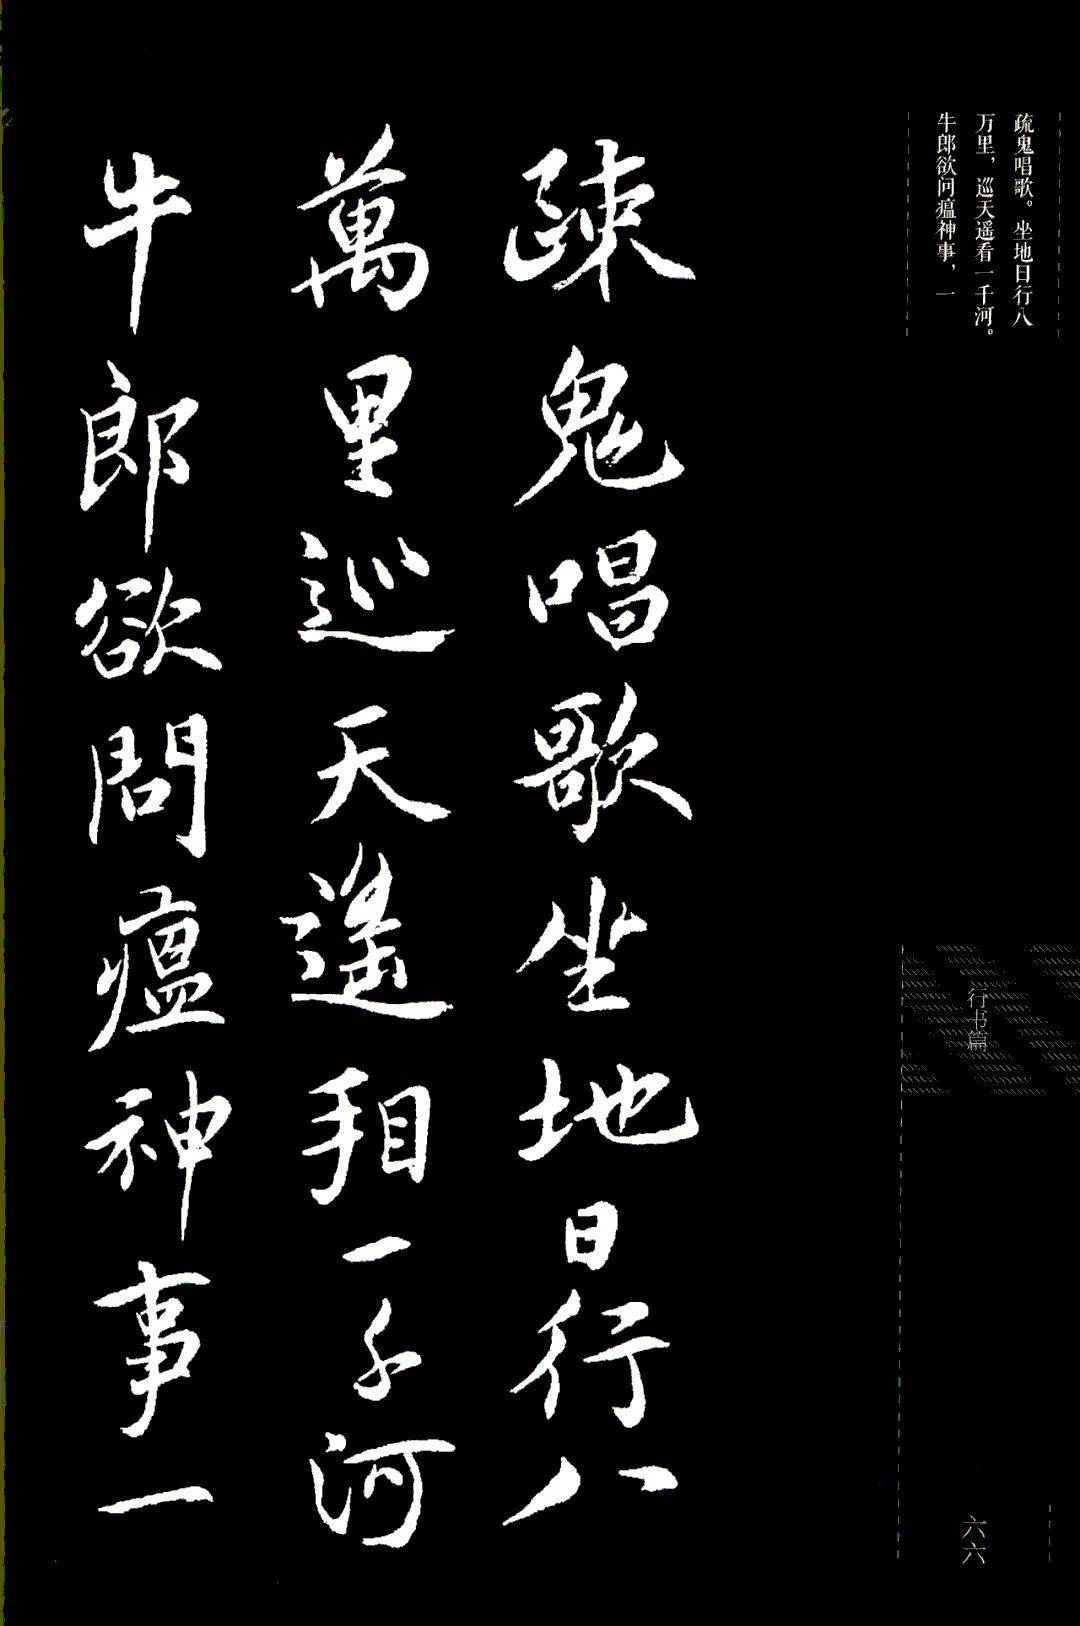 疏鬼唱歌。坐地日行八
万里，巡天遥看一千河。
牛郎欲问瘟神事，一
行书篇
六六
疎鬼唱歌坐地日行八
萬里巡天遙看一千河
牛郎欲問瘟神事一